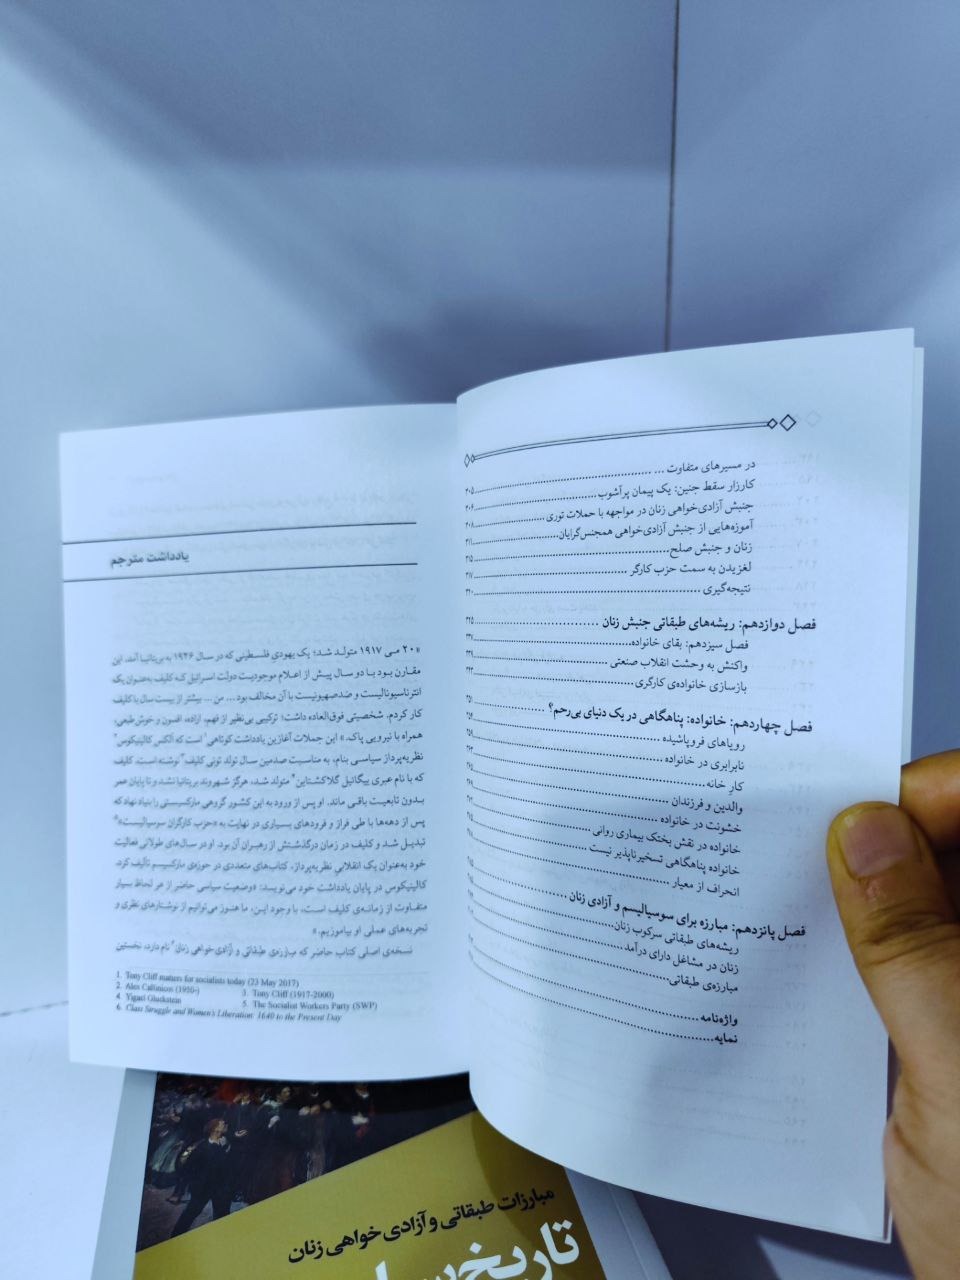 در مسیرهای متفاوت ...
کارزار سقط جنین: یک پیمان پرآشوب ۳۰۵
جنبش آزادی‌خواهی زنان در مواجهه با حملات توری ۳۰۶
آموزه‌هایی از جنبش آزادی‌خواهی همجنس‌گرایان ۳۰۸
زنان و جنبش صلح ۳۱۱
لغزیدن به سمت حزب کارگر ۳۱۵
نتیجه‌گیری ۳۱۷
۳۲۰
فصل دوازدهم: ریشه‌های طبقاتی جنبش زنان ۳۲۵
فصل سیزدهم: بقای خانواده ۳۳۷
واکنش به وحشت انقلاب صنعتی ۳۳۸
بازسازی خانواده‌ی کارگری ۳۴۳
فصل چهاردهم: خانواده: پناهگاهی در یک دنیای بی‌رحم؟ ۳۵۱
رویاهای فروپاشیده
نابرابری در خانواده
کار خانه
والدین و فرزندان
خشونت در خانواده
خانواده در نقش بختک بیماری روانی
خانواده پناهگاهی تسخیرناپذیر نیست
انحراف از معیار
فصل پانزدهم: مبارزه برای سوسیالیسم و آزادی زنان
ریشه‌های طبقاتی سرکوب زنان
زنان در مشاغل دارای درآمد
مبارزه‌ی طبقاتی
واژه‌نامه
نمایه
یادداشت مترجم
«۲۰ می ۱۹۱۷ متولد شد؛ یک یهودیِ فلسطینی که در سال ۱۹۴۶ به بریتانیا آمد. این
مقارن بود با دو سال پیش از اعلام موجودیت دولت اسرائیل که کلیف به‌عنوان یک
انترناسیونالیست و ضدصهیونیست با آن مخالف بود... من ... بیشتر از بیست سال با کلیف
کار کردم. شخصیتی فوق‌العاده داشت؛ ترکیبی بی‌نظیر از فهم، اراده، افسون و خوش‌طبعی،
همراه با نیرویی پاک.» این جملات آغازین یادداشت کوتاهی۱ است که آلکس کالینیکوس۲
نظریه‌پرداز سیاسی بنام، به مناسبت صدمین سال تولد تونی کلیف۳ نوشته است. کلیف
که با نام عبری ییگائیل گلاکشتاین۴ متولد شد، هرگز شهروند بریتانیا نشد و تا پایان عمر
بدون تابعیت باقی ماند. او پس از ورود به این کشور گروهی مارکسیستی را بنیاد نهاد که
پس از دهه‌ها با طی فراز و فرودهای بسیاری در نهایت به «حزب کارگران سوسیالیست»۵
تبدیل شد و کلیف در زمان درگذشتش از رهبران آن بود. او در سال‌های طولانی فعالیت
خود به‌عنوان یک انقلابیِ نظریه‌پرداز، کتاب‌های متعددی در حوزه‌ی مارکسیسم تألیف کرد.
کالینیکوس در پایان یادداشت خود می‌نویسد: «وضعیت سیاسی حاضر از هر لحاظ بسیار
متفاوت از زمانه‌ی کلیف است، با وجود این، ما هنوز می‌توانیم از نوشتارهای نظری و
تجربه‌های عملی او بیاموزیم.»
نسخه‌ی اصلی کتاب حاضر که مبارزه‌ی طبقاتی و آزادی‌خواهی زنان۶ نام دارد، نخستین
1. Tony Cliff matters for socialists today (23 May 2017)
2. Alex Callinicos (1950-) 3. Tony Cliff (1917-2000)
4. Yigael Gluckstein 5. The Socialist Workers Party (SWP)
6. Class Struggle and Women's Liberation: 1640 to the Present Day
مبارزات طبقاتی و آزادی خواهی زنان